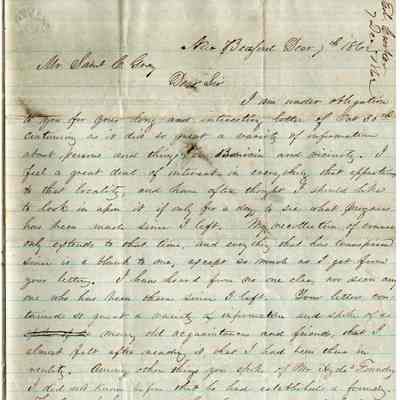 New Bedford Decr 7th 1860
Mr. Saml C. Gray
Dear Sir
I am under obligation
to you for your long and interesting letter of Oct 30th
containing as it did so great a variety of information
about persons and things in and vicinity. I
feel a great deal of interest in every thing that appertains
to that locality, and have often thought I should like
to look in upon it if only for a day to see what progress
has been made since I left. My recollection of course
only extends to that time, and every thing that has transpired
since is a blank to me, except so much as I get from
your letters. I have heard from no one else, nor seen any
one who has been there since I left. Your letter con-
tained so great a variety of information and spoke of so
many old acquaintances and friends, that I
almost felt after reading it that I had been there in
reality. Among other things you spoke of Mr Hyde's Foundry
I did not know before that he had established a foundry.
7 Dec